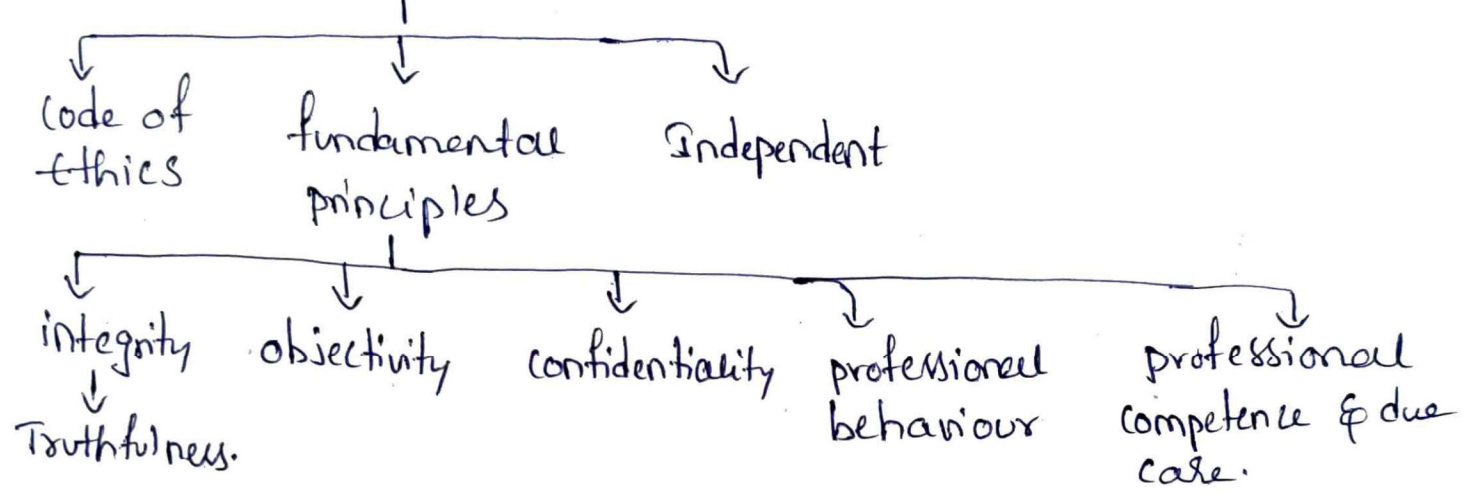 Code of
Ethics
fundamental
principles
Independent
integrity
Truthfulness.
objectivity
confidentiality
professional
behaviour
professional
competence & due
care.